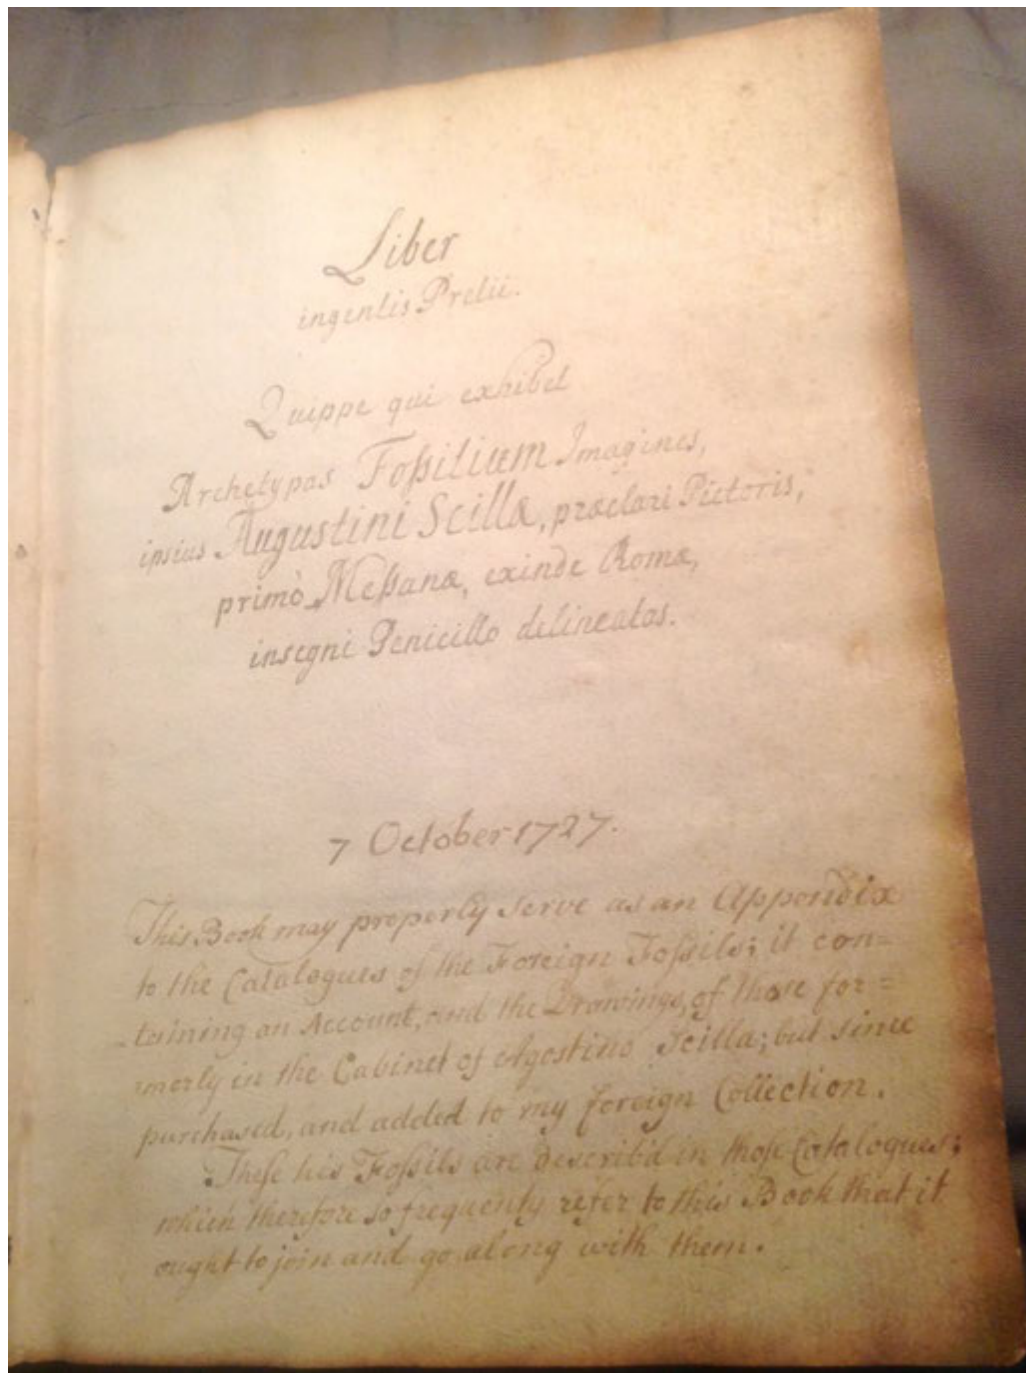 Liber
ingentis Pretii.
Quippe qui exhibet
Archetypas Foſsilium Imagines,
ipsius Augustini Scillæ, præclari Pictoris,
primò Meſsanæ, exinde Romæ,
insigni Penicillo delineatas.
7 October 1727.
This Book may properly serve as an Appendix
to the Catalogues of the Foreign Foſsils; it con=
taining an Account, and the Drawings, of those for=
merly in the Cabinet of Agostino Scilla; but since
purchased, and added to my foreign Collection.
Theſe his Foſsils are describ'd in thoſe Catalogues;
which therefore so frequently refer to this Book that it
ought to join and go along with them.